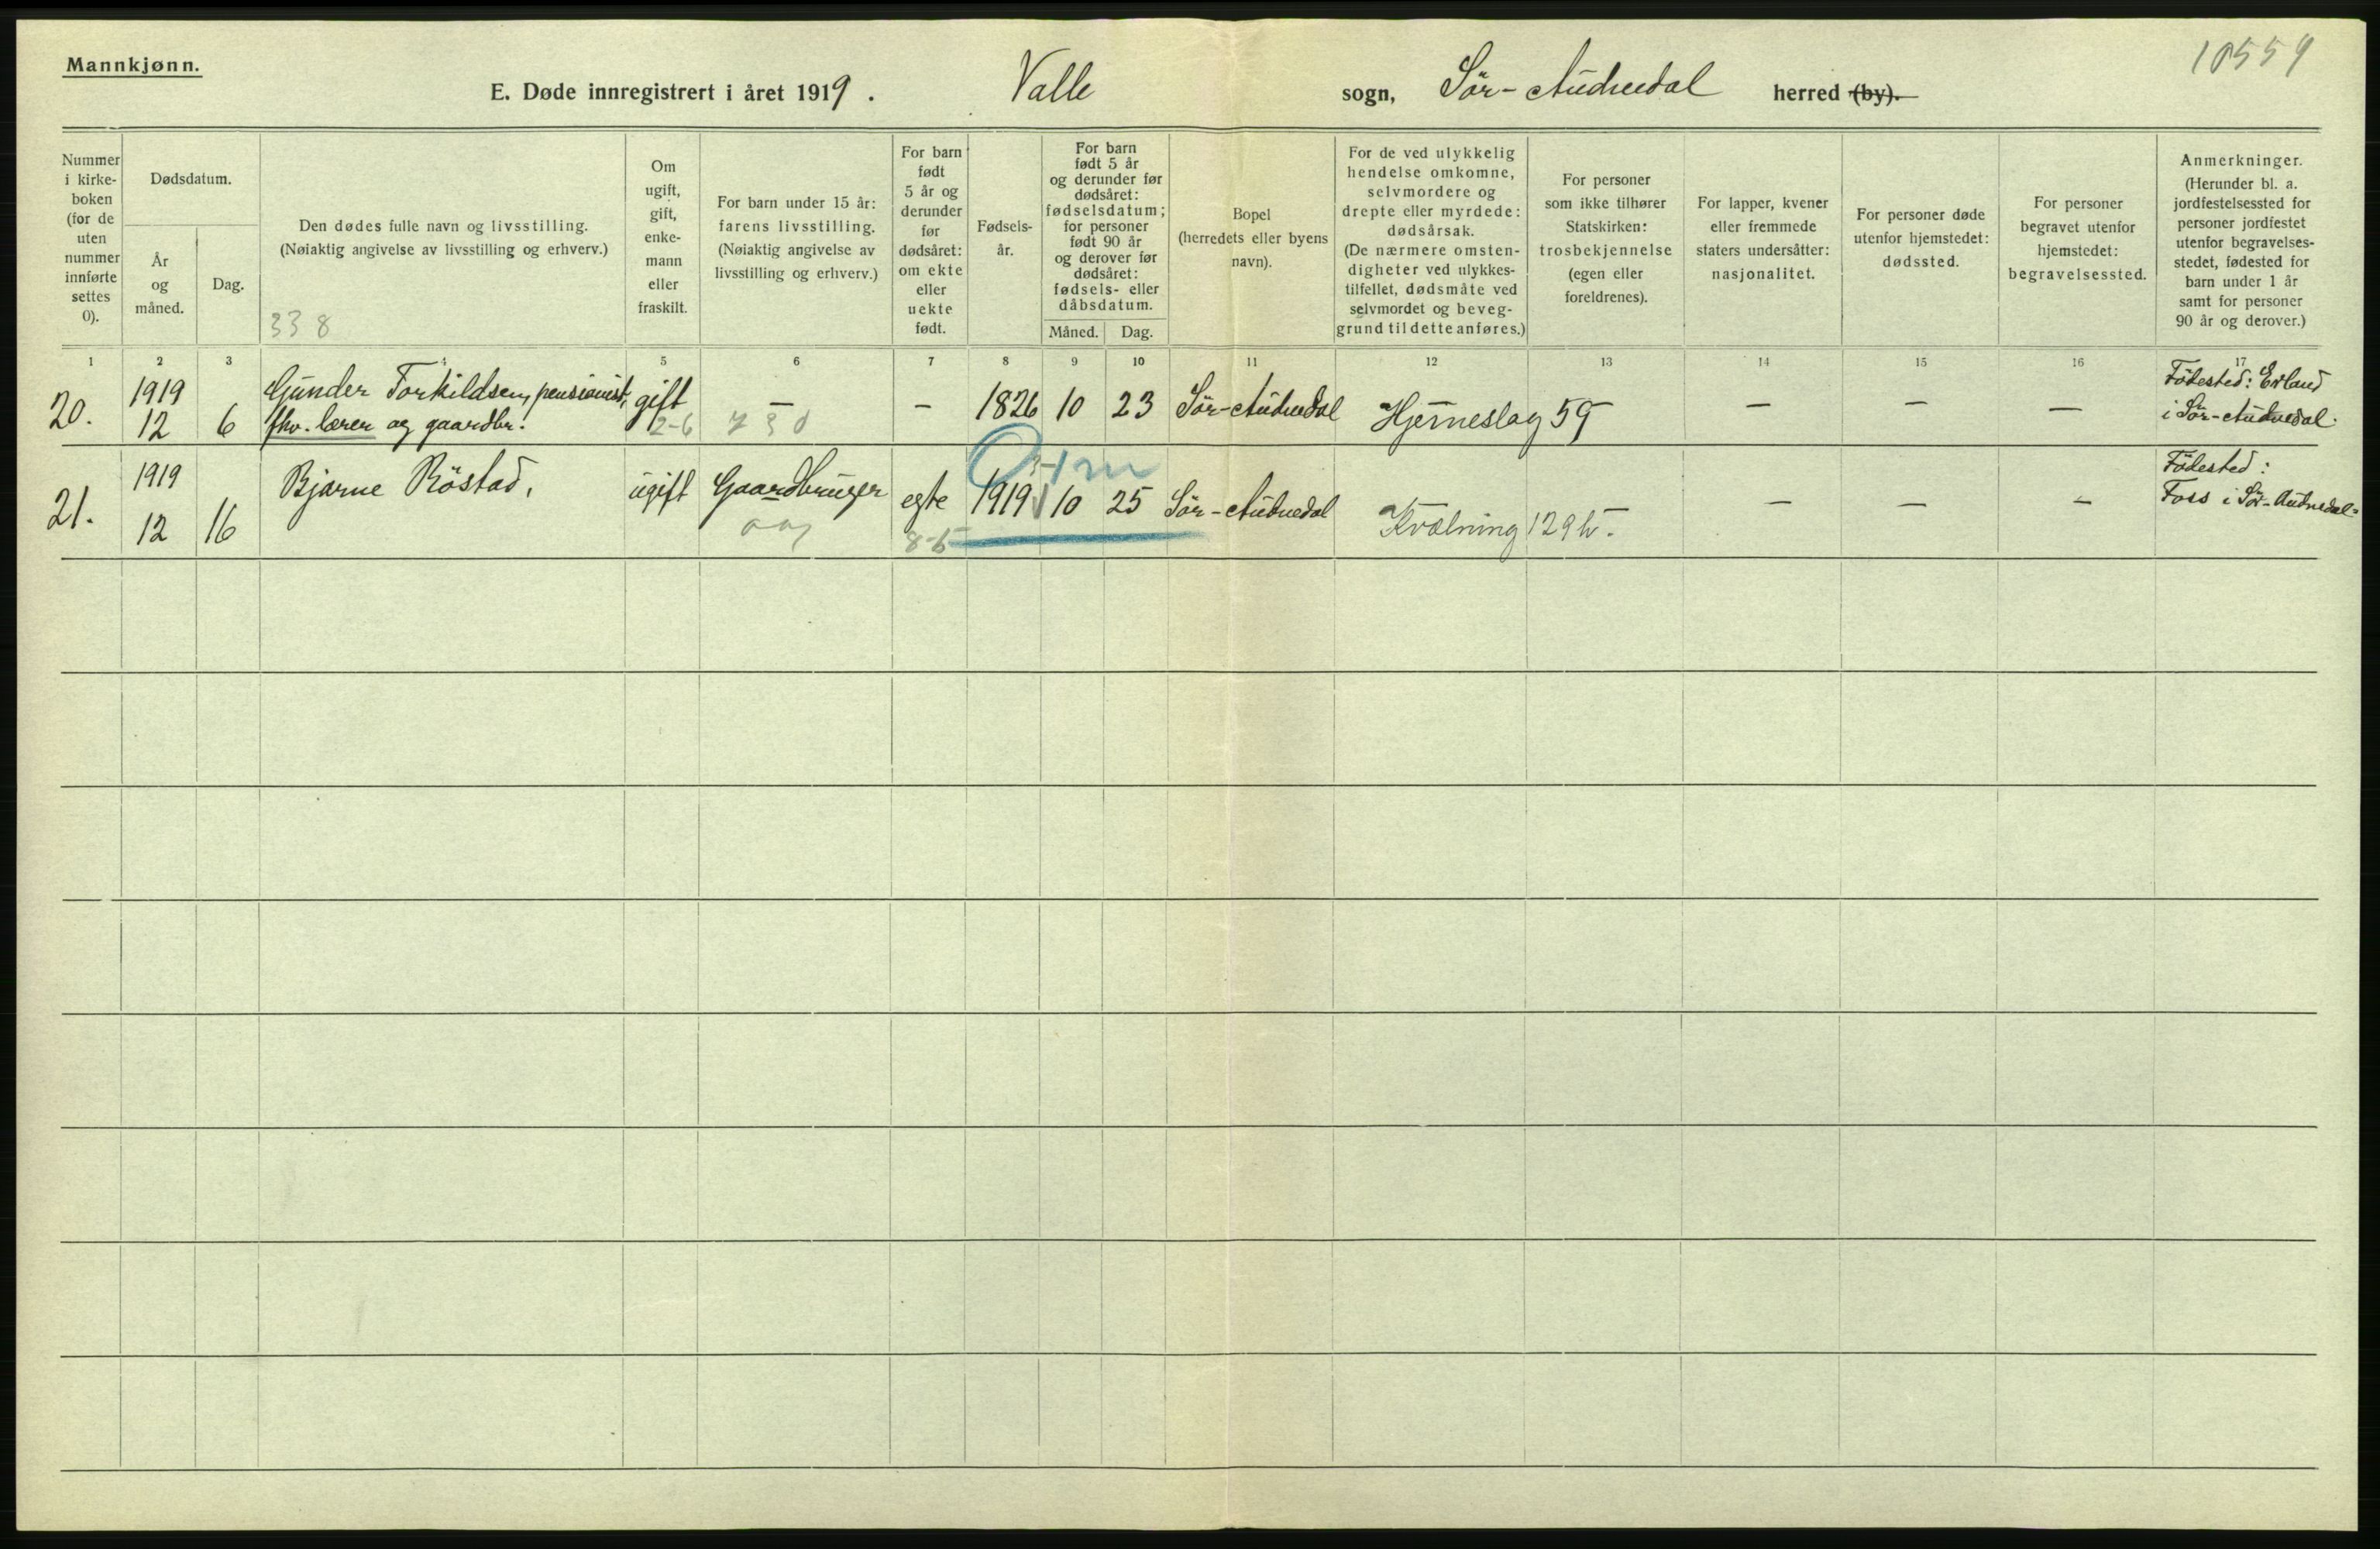 Mannkjønn.
10559
E. Døde innregistrert i året 1919. Valle sogn, Sör-Audnedal herred (by).
Nummer i kirke-boken (for de uten nummer innførte settes 0).
Dødsdatum.
År og måned.
Dag.
Den dødes fulle navn og livsstilling.
(Nøiaktig angivelse av livsstilling og erhverv.)
338
Om ugift, gift, enke-mann eller fraskilt.
For barn under 15 år: farens livsstilling. (Nøiaktig angivelse av livsstilling og erhverv.)
For barn født 5 år og derunder før dødsåret: om ekte eller uekte født.
Fødsels-år.
For barn født 5 år og derunder før dødsåret: fødselsdatum; for personer født 90 år og derover før dødsåret: fødsels- eller dåbsdatum.
Måned. Dag.
Bopel (herredets eller byens navn).
For de ved ulykkelig hendelse omkomne, selvmordere og drepte eller myrdede: dødsårsak. (De nærmere omsten-digheter ved ulykkes-tilfellet, dødsmåte ved selvmordet og beveg-grund til dette anføres.)
For personer som ikke tilhører Statskirken: trosbekjennelse (egen eller foreldrenes).
For lapper, kvener eller fremmede staters undersåtter: nasjonalitet.
For personer døde utenfor hjemstedet: dødssted.
For personer begravet utenfor hjemstedet: begravelsessted.
Anmerkninger. (Herunder bl. a. jordfestelsessted for personer jordfestet utenfor begravelses-stedet, fødested for barn under 1 år samt for personer 90 år og derover.)
1 2 3 4 5 6 7 8 9 10 11 12 13 14 15 16 17
20. 1919 12 6 Gunder Torkildsen, pensionist, fhv. lærer og gaardbr. gift 2-6 - - 1826 10 23 Sör-Audnedal Hjerneslag 59 - - - Födested: Erland i Sör-Audnedal.
21. 1919 12 16 Bjarne Röstad, ugift Gaardbruger egte 8-5 1919 10 25 Sör-Audnedal Kvælning 129 b. - - - Födested: Foss i Sör-Audnedal.